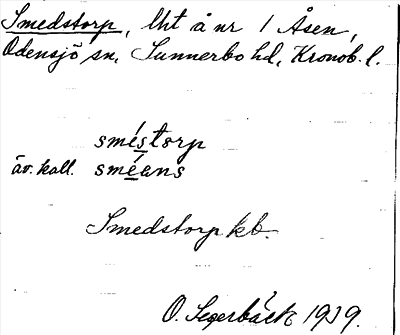 Smedstorp, lht å nr 1 Åsen,
Odensjö sn, Sunnerbo hd, Kronob. l.
sméstorp
äv. kall. sméens
Smedstorp kb.
O. Segerbäck 1939.